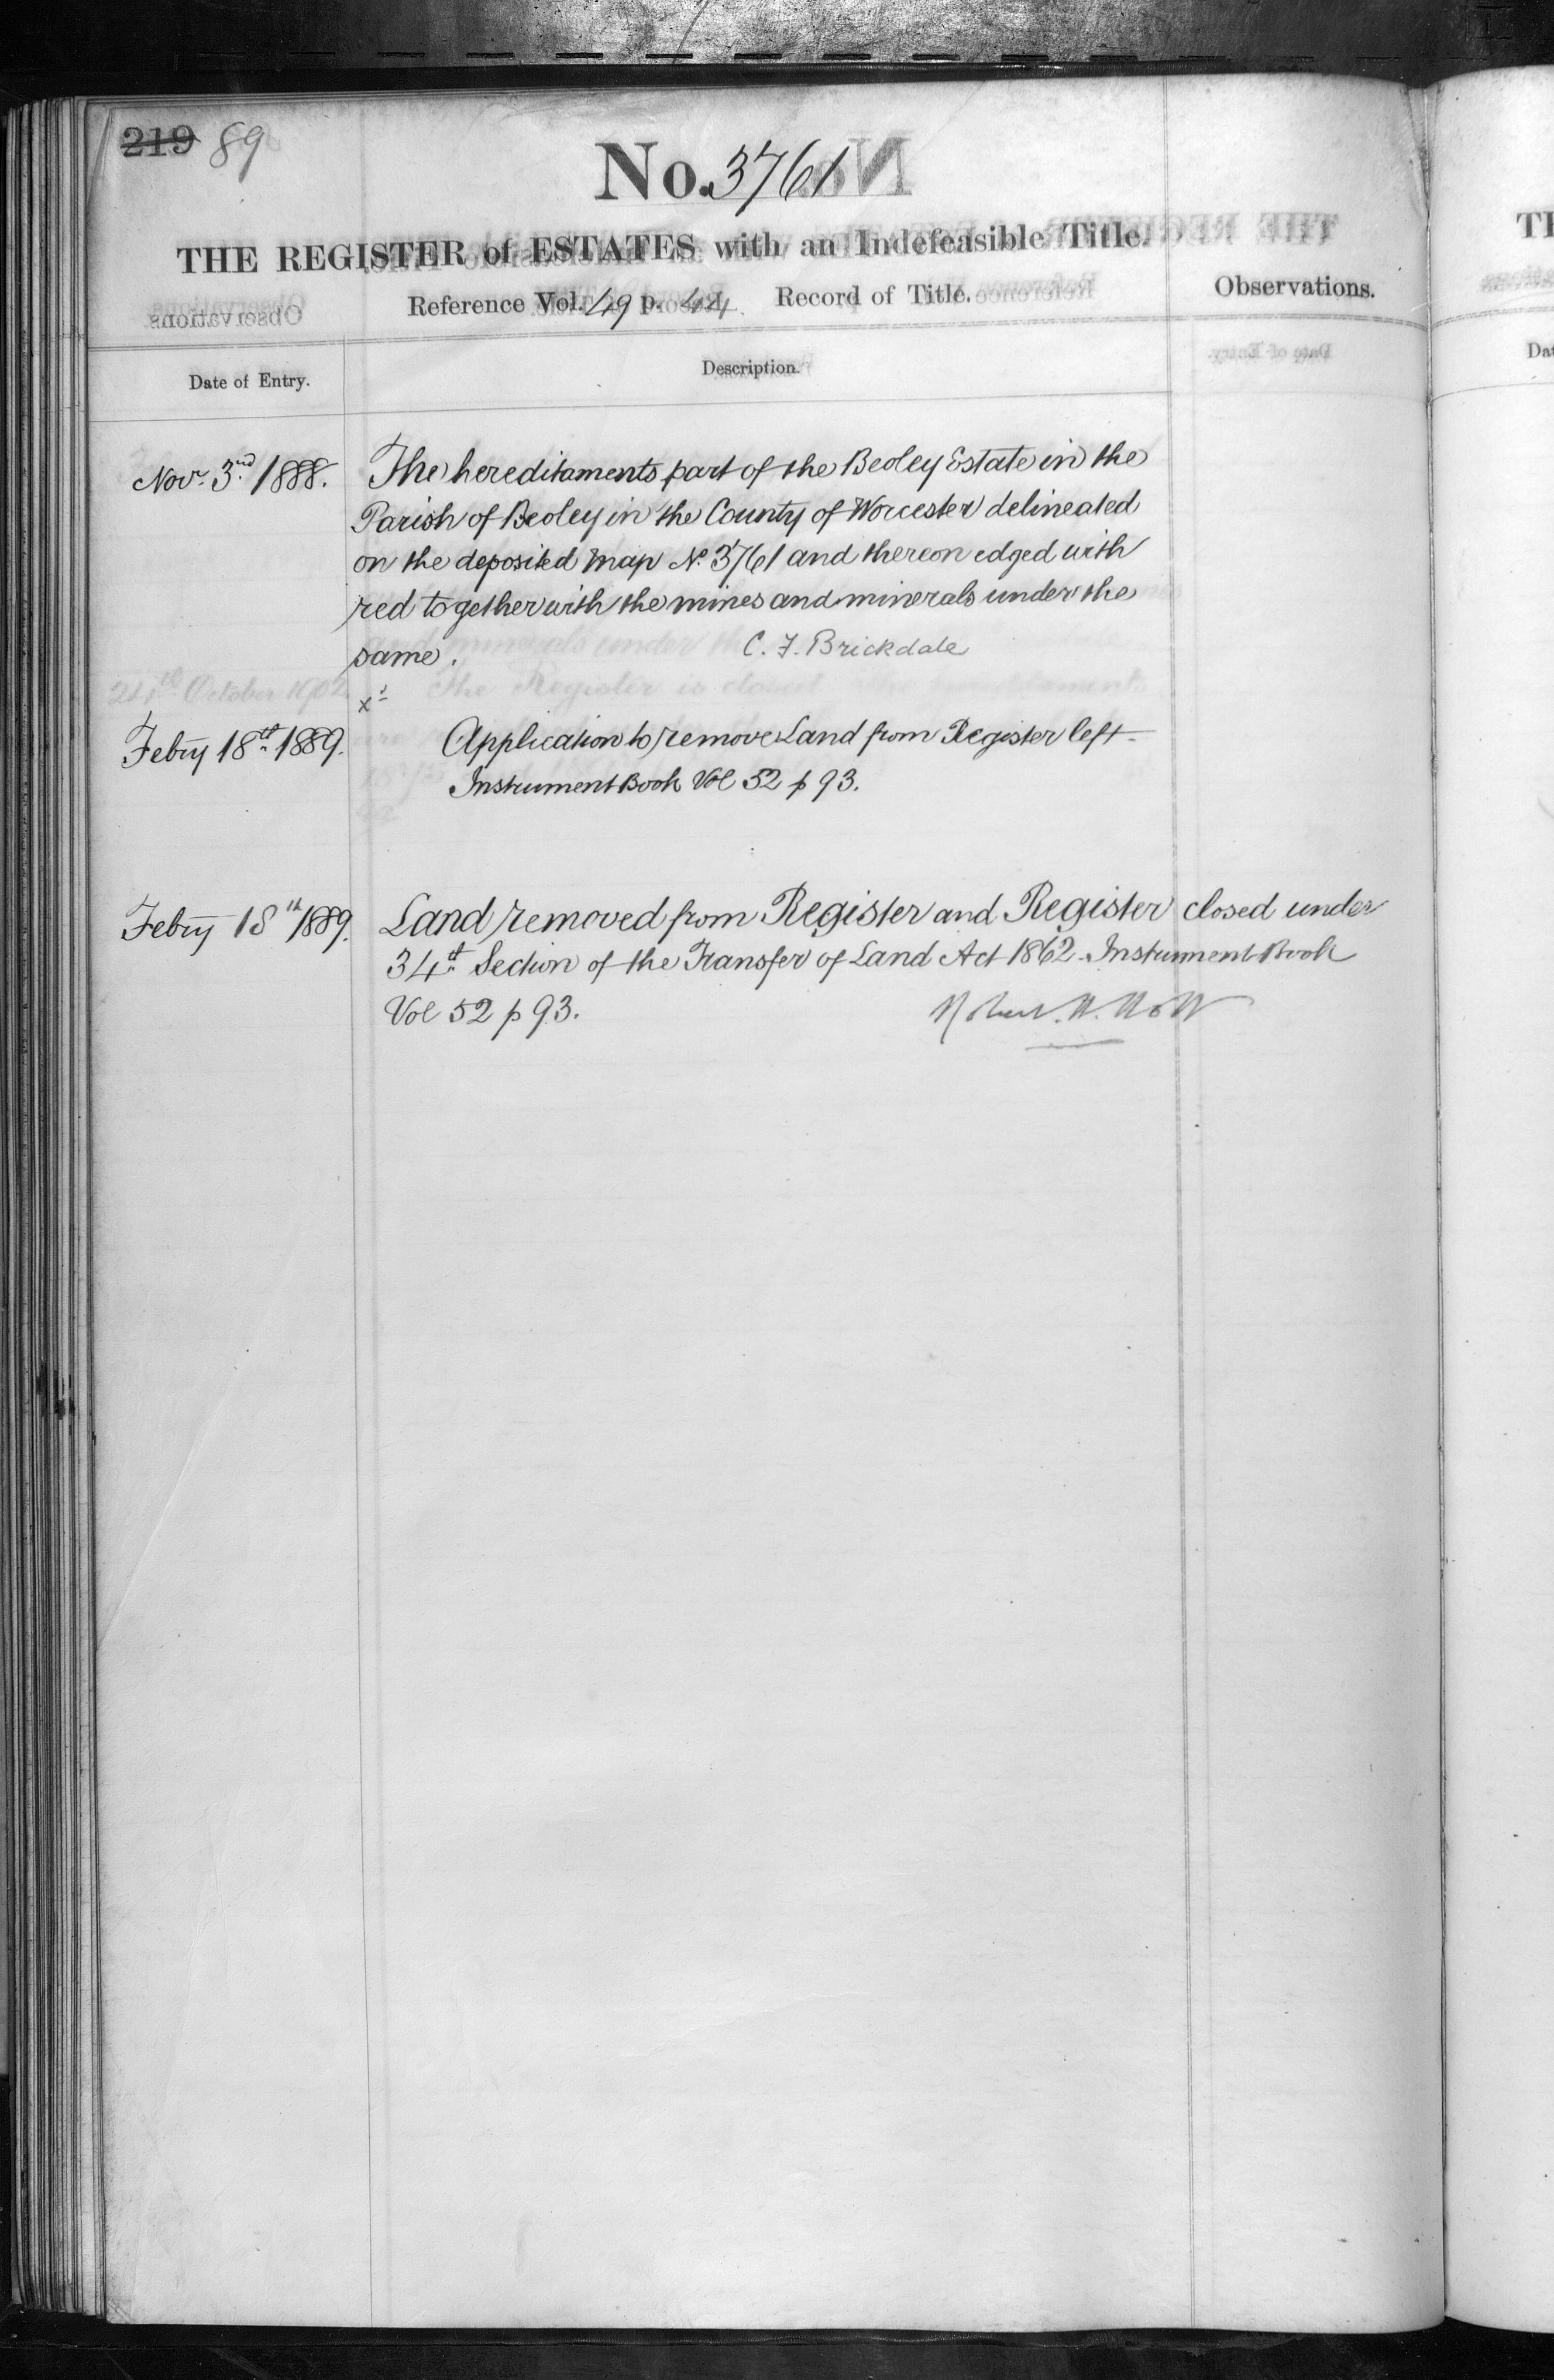 219 89
No. 3761
THE REGISTER of ESTATES with an Indefeasible Title.
Reference Vol. 49 p. 44. Record of Title.
Observations.
Date of Entry.
Description.
Novr. 3rd 1888. The hereditaments part of the Beoley Estate in the
Parish of Beoley in the County of Worcester delineated
on the deposited map No. 3761 and thereon edged with
red together with the mines and minerals under the
same. C. F. Brickdale
24th October 1902 The Register is closed
x1
Febry 18th 1889. Application to remove Land from Register left
Instrument Book Vol 52 p 93.
Febry 18th 1889. Land removed from Register and Register closed under
34th Section of the Transfer of Land Act 1862. Instrument Book
Vol 52 p 93.